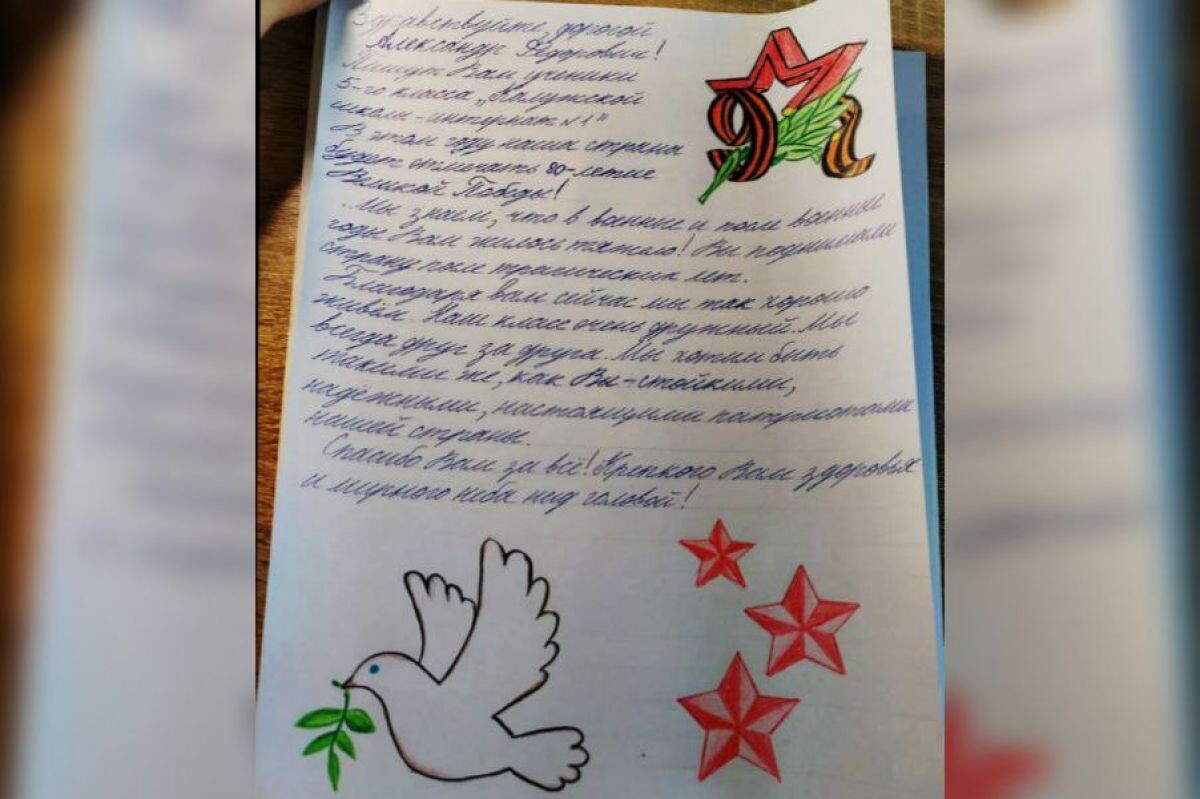 Здравствуйте, дорогой
Александр Фёдорович!
Пишут Вам ученики
5-го класса „Калужской
школы-интернат №1"
В этом году наша страна
будет отмечать 80-летие
Великой Победы!
Мы знаем, что в военные и после военные
годы Вам жилось тяжело! Вы поднимали
страну после трагических лет.
Благодаря вам сейчас мы так хорошо
живём. Наш класс очень дружный. Мы
всегда друг за друга. Мы хотим быть
такими же, как Вы-стойкими,
надёжными, настоящими патриотами
нашей страны.
Спасибо Вам за всё! Крепкого Вам здоровья
и мирного неба над головой!